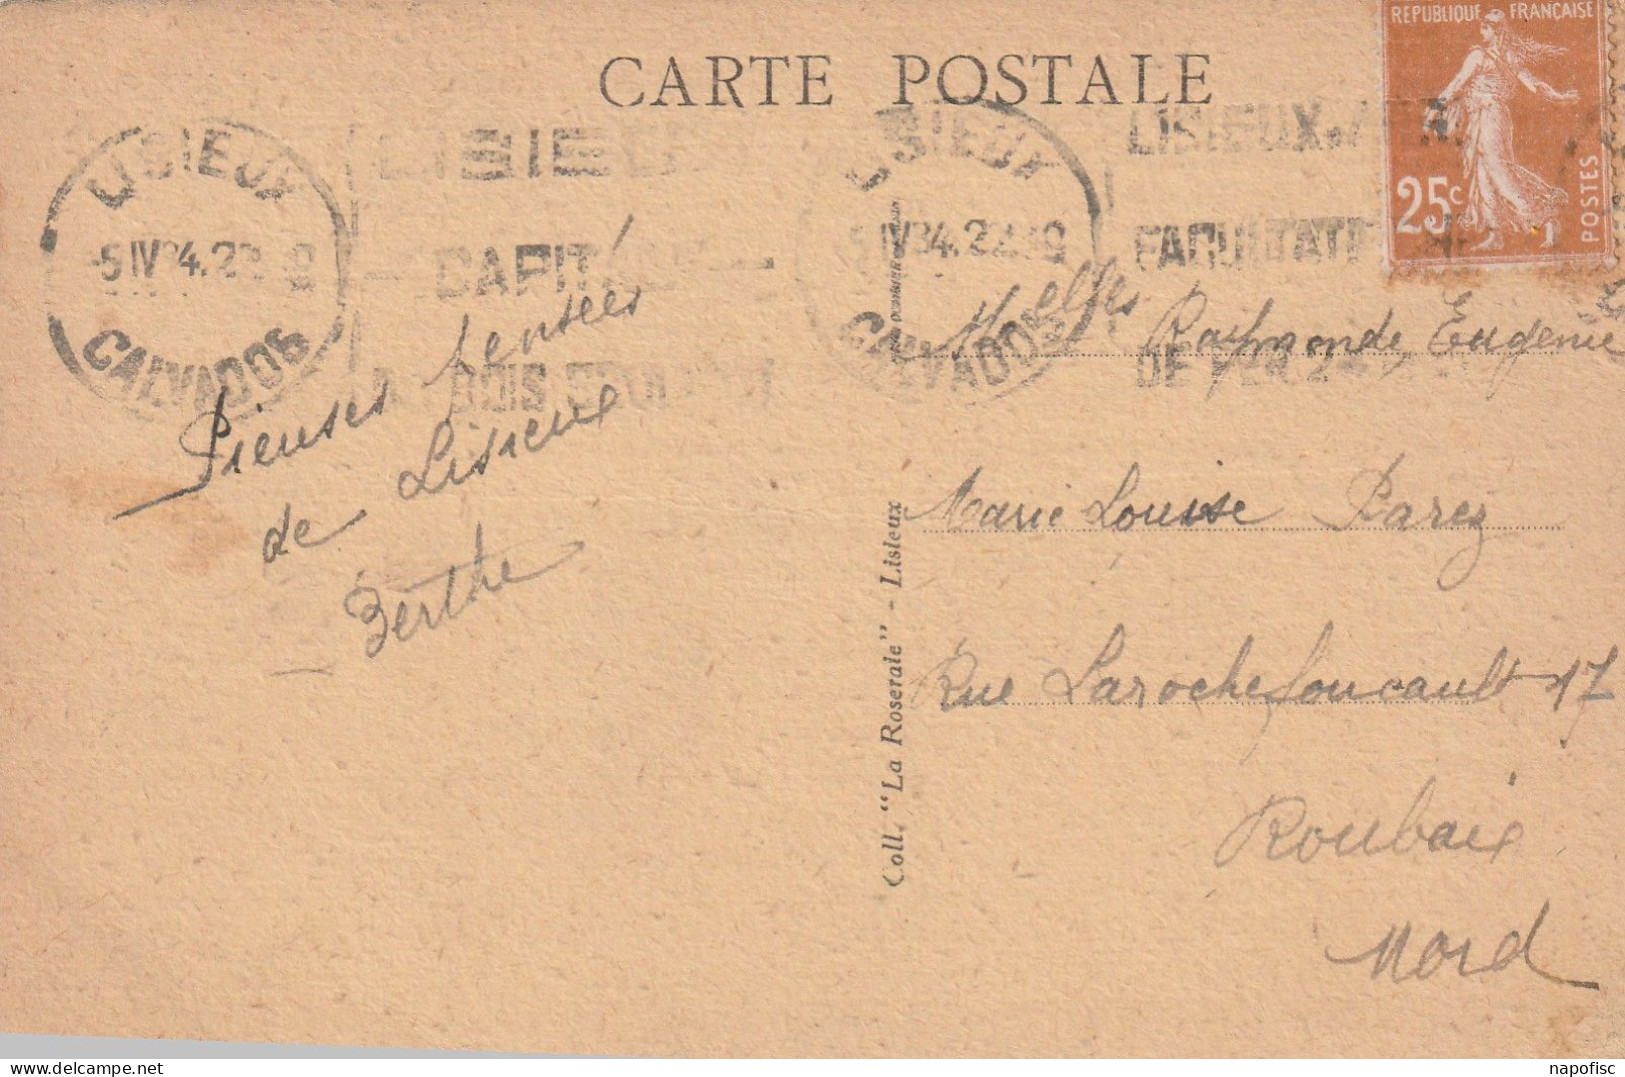 CARTE POSTALE
REPUBLIQUE FRANÇAISE
25c
POSTES
LISIEUX
5 IV 34.
CALVADOS
LISIEU
CAPIT
LISIEUX
IV 34. 22
CALVADOS
LISIEUX
FACULTATI
DE
Pieuses pensées
de Lisieux
Berthe
Coll. "La Roseraie" - Lisieux
Melles Raymonde, Eugenie
Marie Louise Parez
Rue Larochefoucault 17
Roubaix
Nord
napofisc